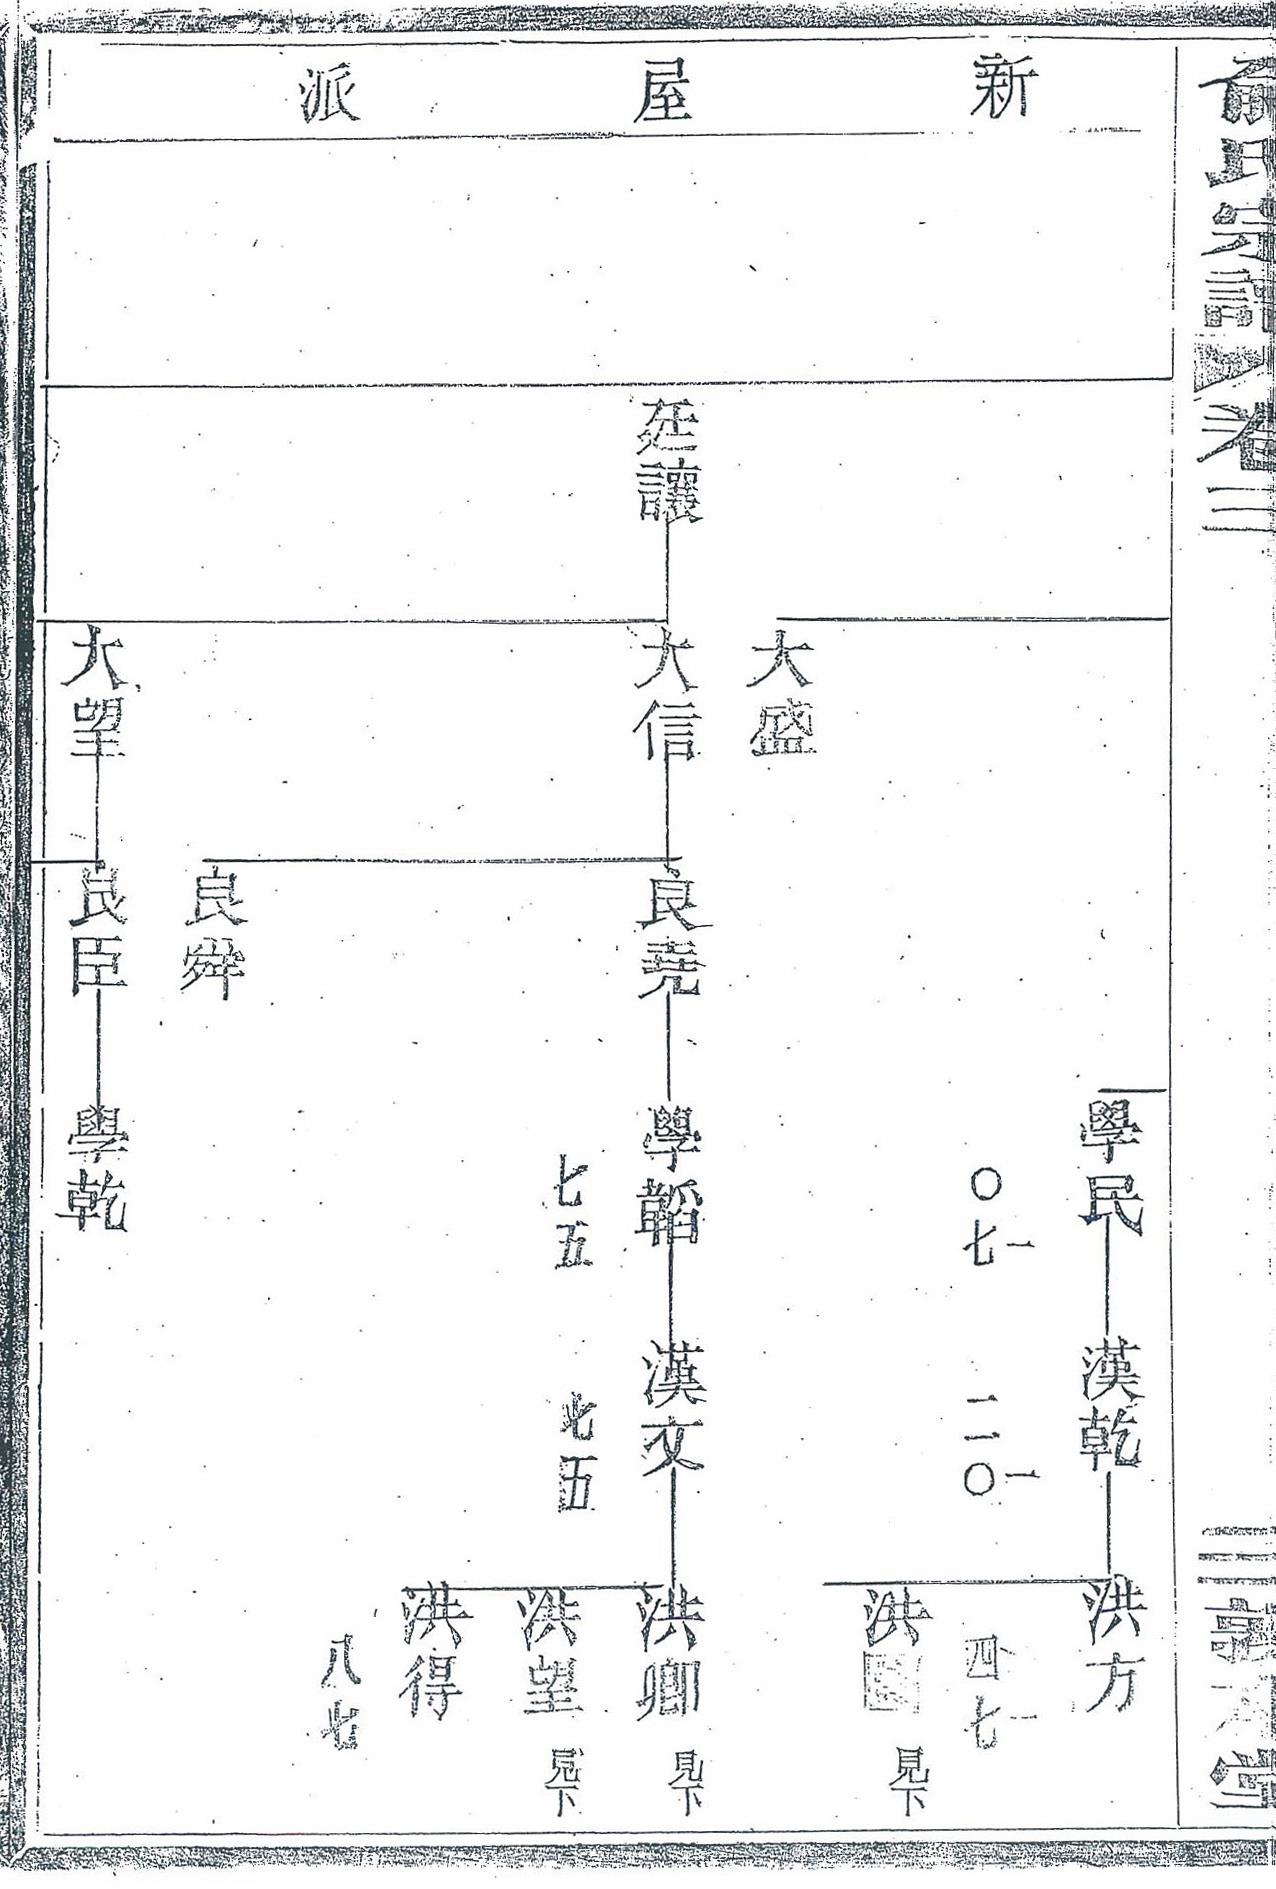 俞氏宗譜 卷三
三 堂
新屋派
廷讓
大盛
大信
大望
良堯
良舜
良臣
學民
〇七一
學韜
七五
學乾
漢乾
二一〇一
漢文
七五
洪方
四七一
洪 見下
洪卿 見下
洪望 見下
洪得
八七